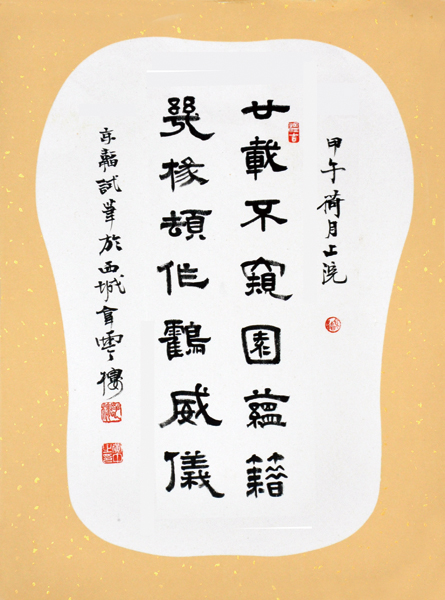 甲午荷月上浣
廿載不窺園蘊籍
幾椽頓作鸛威儀
試筆於西城耷雲樓